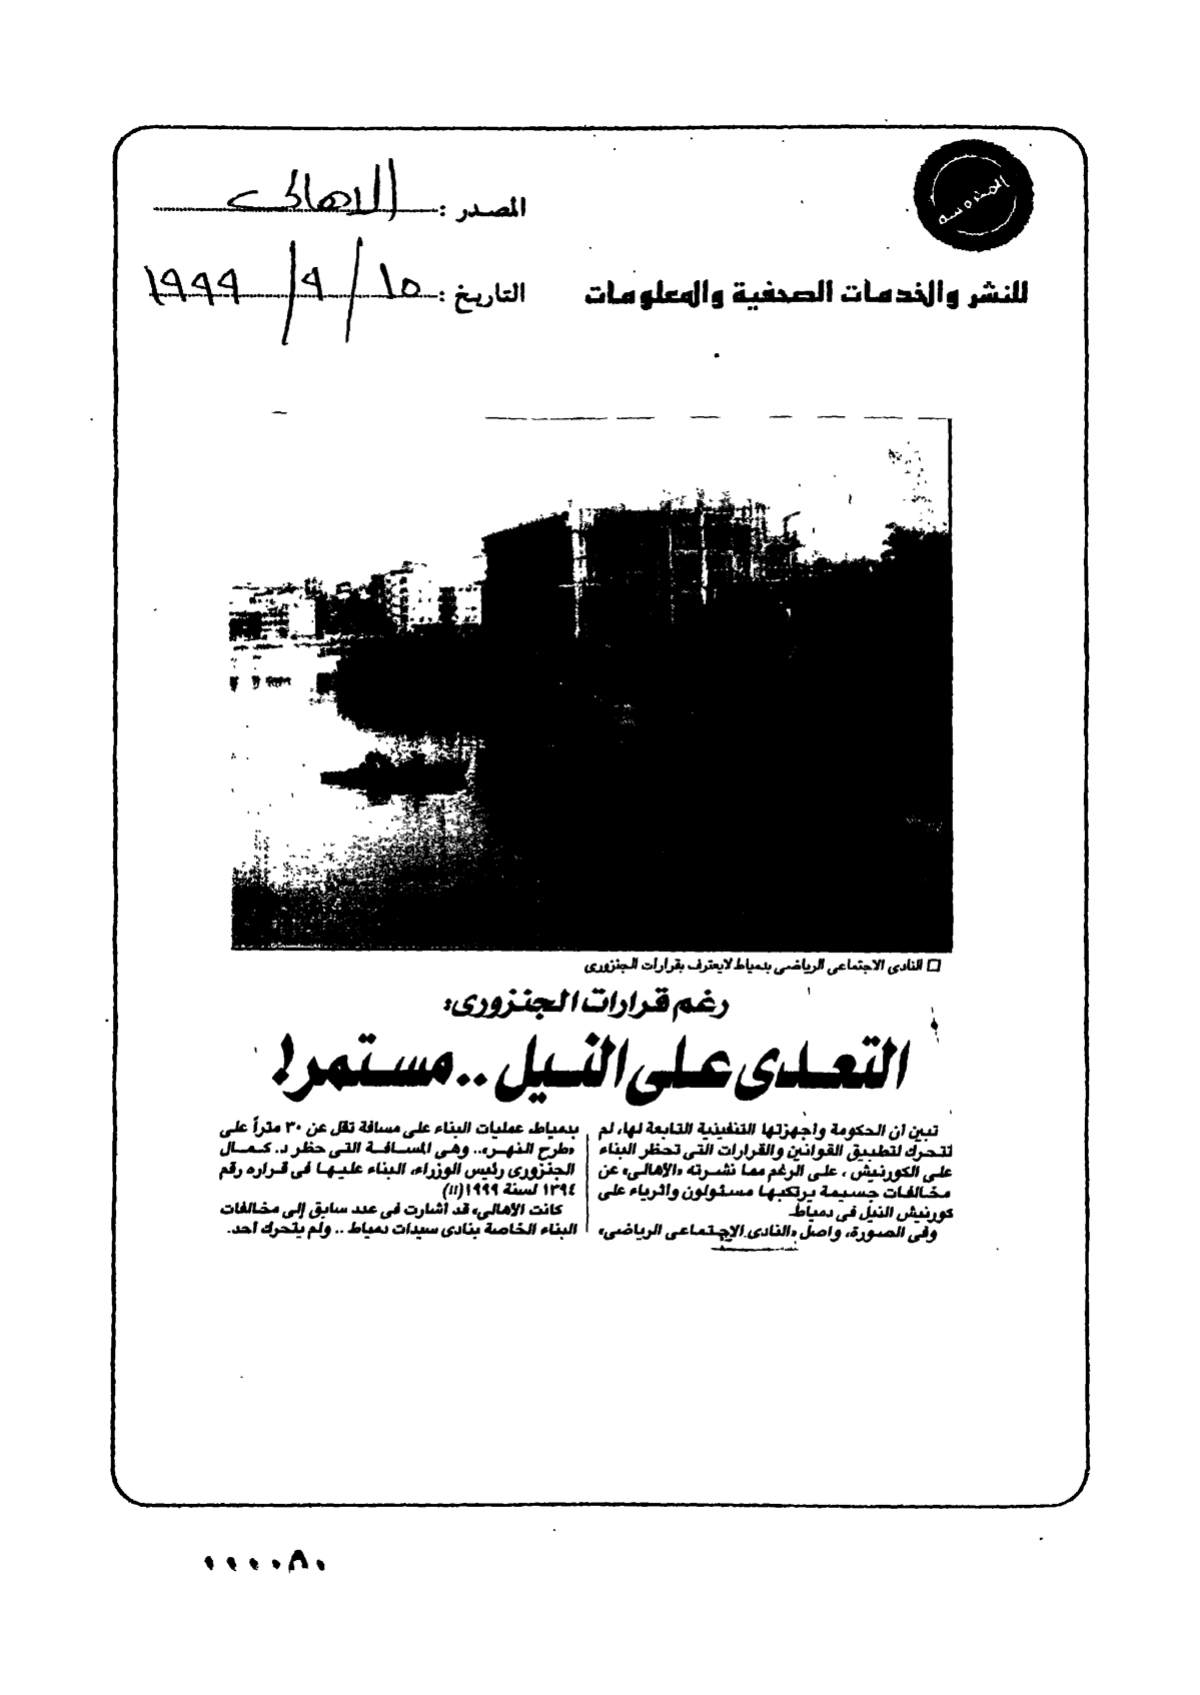 المصدر : الاهالى
المحروسة
للنشر والخدمات الصحفية والمعلومات
التاريخ : ١٥ / ٩ / ١٩٩٩
□ النادى الاجتماعى الرياضى بدمياط لايعترف بقرارات الجنزورى
رغم قرارات الجنزورى:
التعدى على النيل .. مستمر!
تبين أن الحكومة وأجهزتها التنفيذية التابعة لها، لم
تتحرك لتطبيق القوانين والقرارات التى تحظر البناء
على الكورنيش ، على الرغم مما نشرته «الأهالى» عن
مخالفات جسيمة يرتكبها مسئولون وأثرياء على
كورنيش النيل فى دمياط.
وفى الصورة، واصل «النادى الإجتماعى الرياضى»
بدمياط، عمليات البناء على مسافة تقل عن ٣٠ متراً على
«طرح النهر».. وهى المسافة التى حظر د. كمال
الجنزورى رئيس الوزراء، البناء عليها فى قراره رقم
١٣٩٤ لسنة ١٩٩٩(!!)
كانت الأهالى، قد أشارت فى عدد سابق إلى مخالفات
البناء الخاصة بنادى سيدات دمياط .. ولم يتحرك أحد.